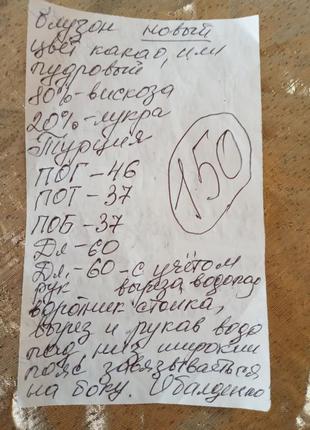 блузон новый
цвет какао, или
пудровый
80%-вискоза
20%-лукра
Турция
150
ПОГ-46
ПОТ-37
ПОБ-37
Дл-60
Дл.-60-с учётом
рук выреза, водопад
воротник стойка,
вырез и рукав водо
пад, низ широкий
пояс завязываться
на боку. Обалденно